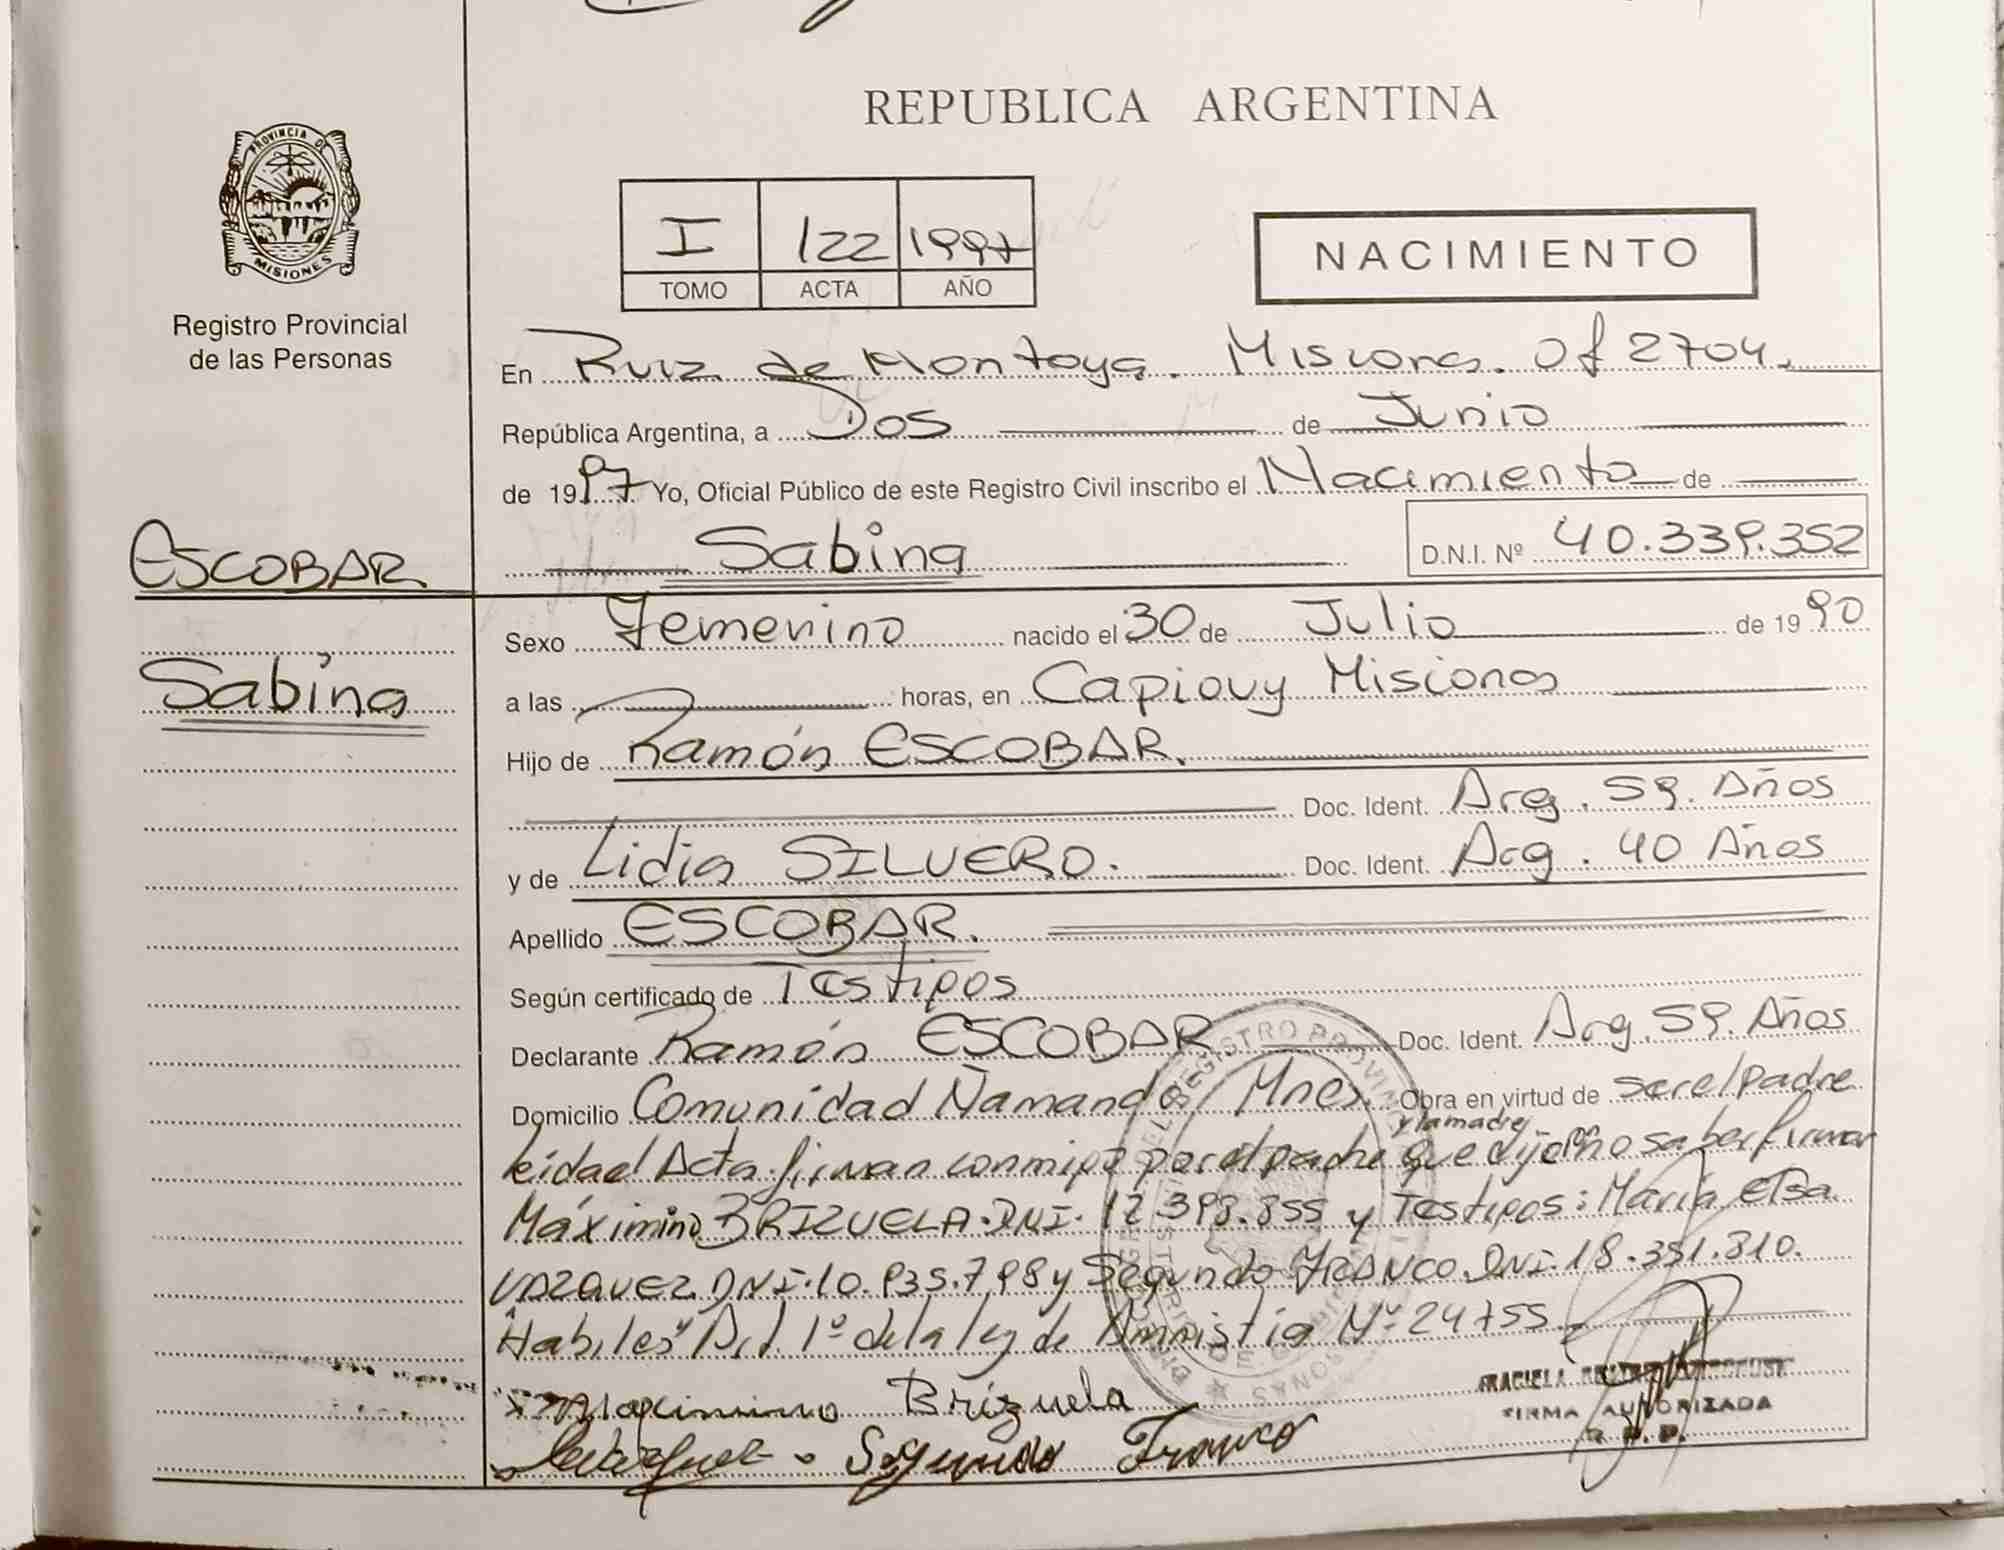 REPUBLICA ARGENTINA
PROVINCIA DE
MISIONES
Registro Provincial
de las Personas
I 122 1997
TOMO ACTA AÑO
NACIMIENTO
En Ruiz de Montoya. Misiones. Of 2704.
República Argentina, a Dos de Junio
de 1997 Yo, Oficial Público de este Registro Civil inscribo el Nacimiento de
Sabina D.N.I. Nº 40.339.352
ESCOBAR
Sabina
Sexo Femenino nacido el 30 de Julio de 1990
a las horas, en Capiovy Misiones
Hijo de Ramón ESCOBAR.
Doc. Ident. Arg. 59. Años
y de Lidia SILVERO. Doc. Ident. Arg. 40 Años
Apellido ESCOBAR.
Según certificado de Testigos
Declarante Ramón ESCOBAR Doc. Ident. Arg. 59. Años
Domicilio Comunidad Ñamandú Mnes. Obra en virtud de ser el padre
y la madre
leida el Acta firman conmigo por el padre que dijeron no saber firmar
Máximino BRIZUELA. DNI. 12.398.855 y Testigos: María Elsa
VAZQUEZ DNI. 10.935.798 y Segundo FRANCO. DNI. 18.351.810.
Habiles Art. 1º de la ley de Amnistia Nº 24755
Maximino Brizuela
Segundo Franco
GRACIELA
FIRMA AUTORIZADA
R.P.P.